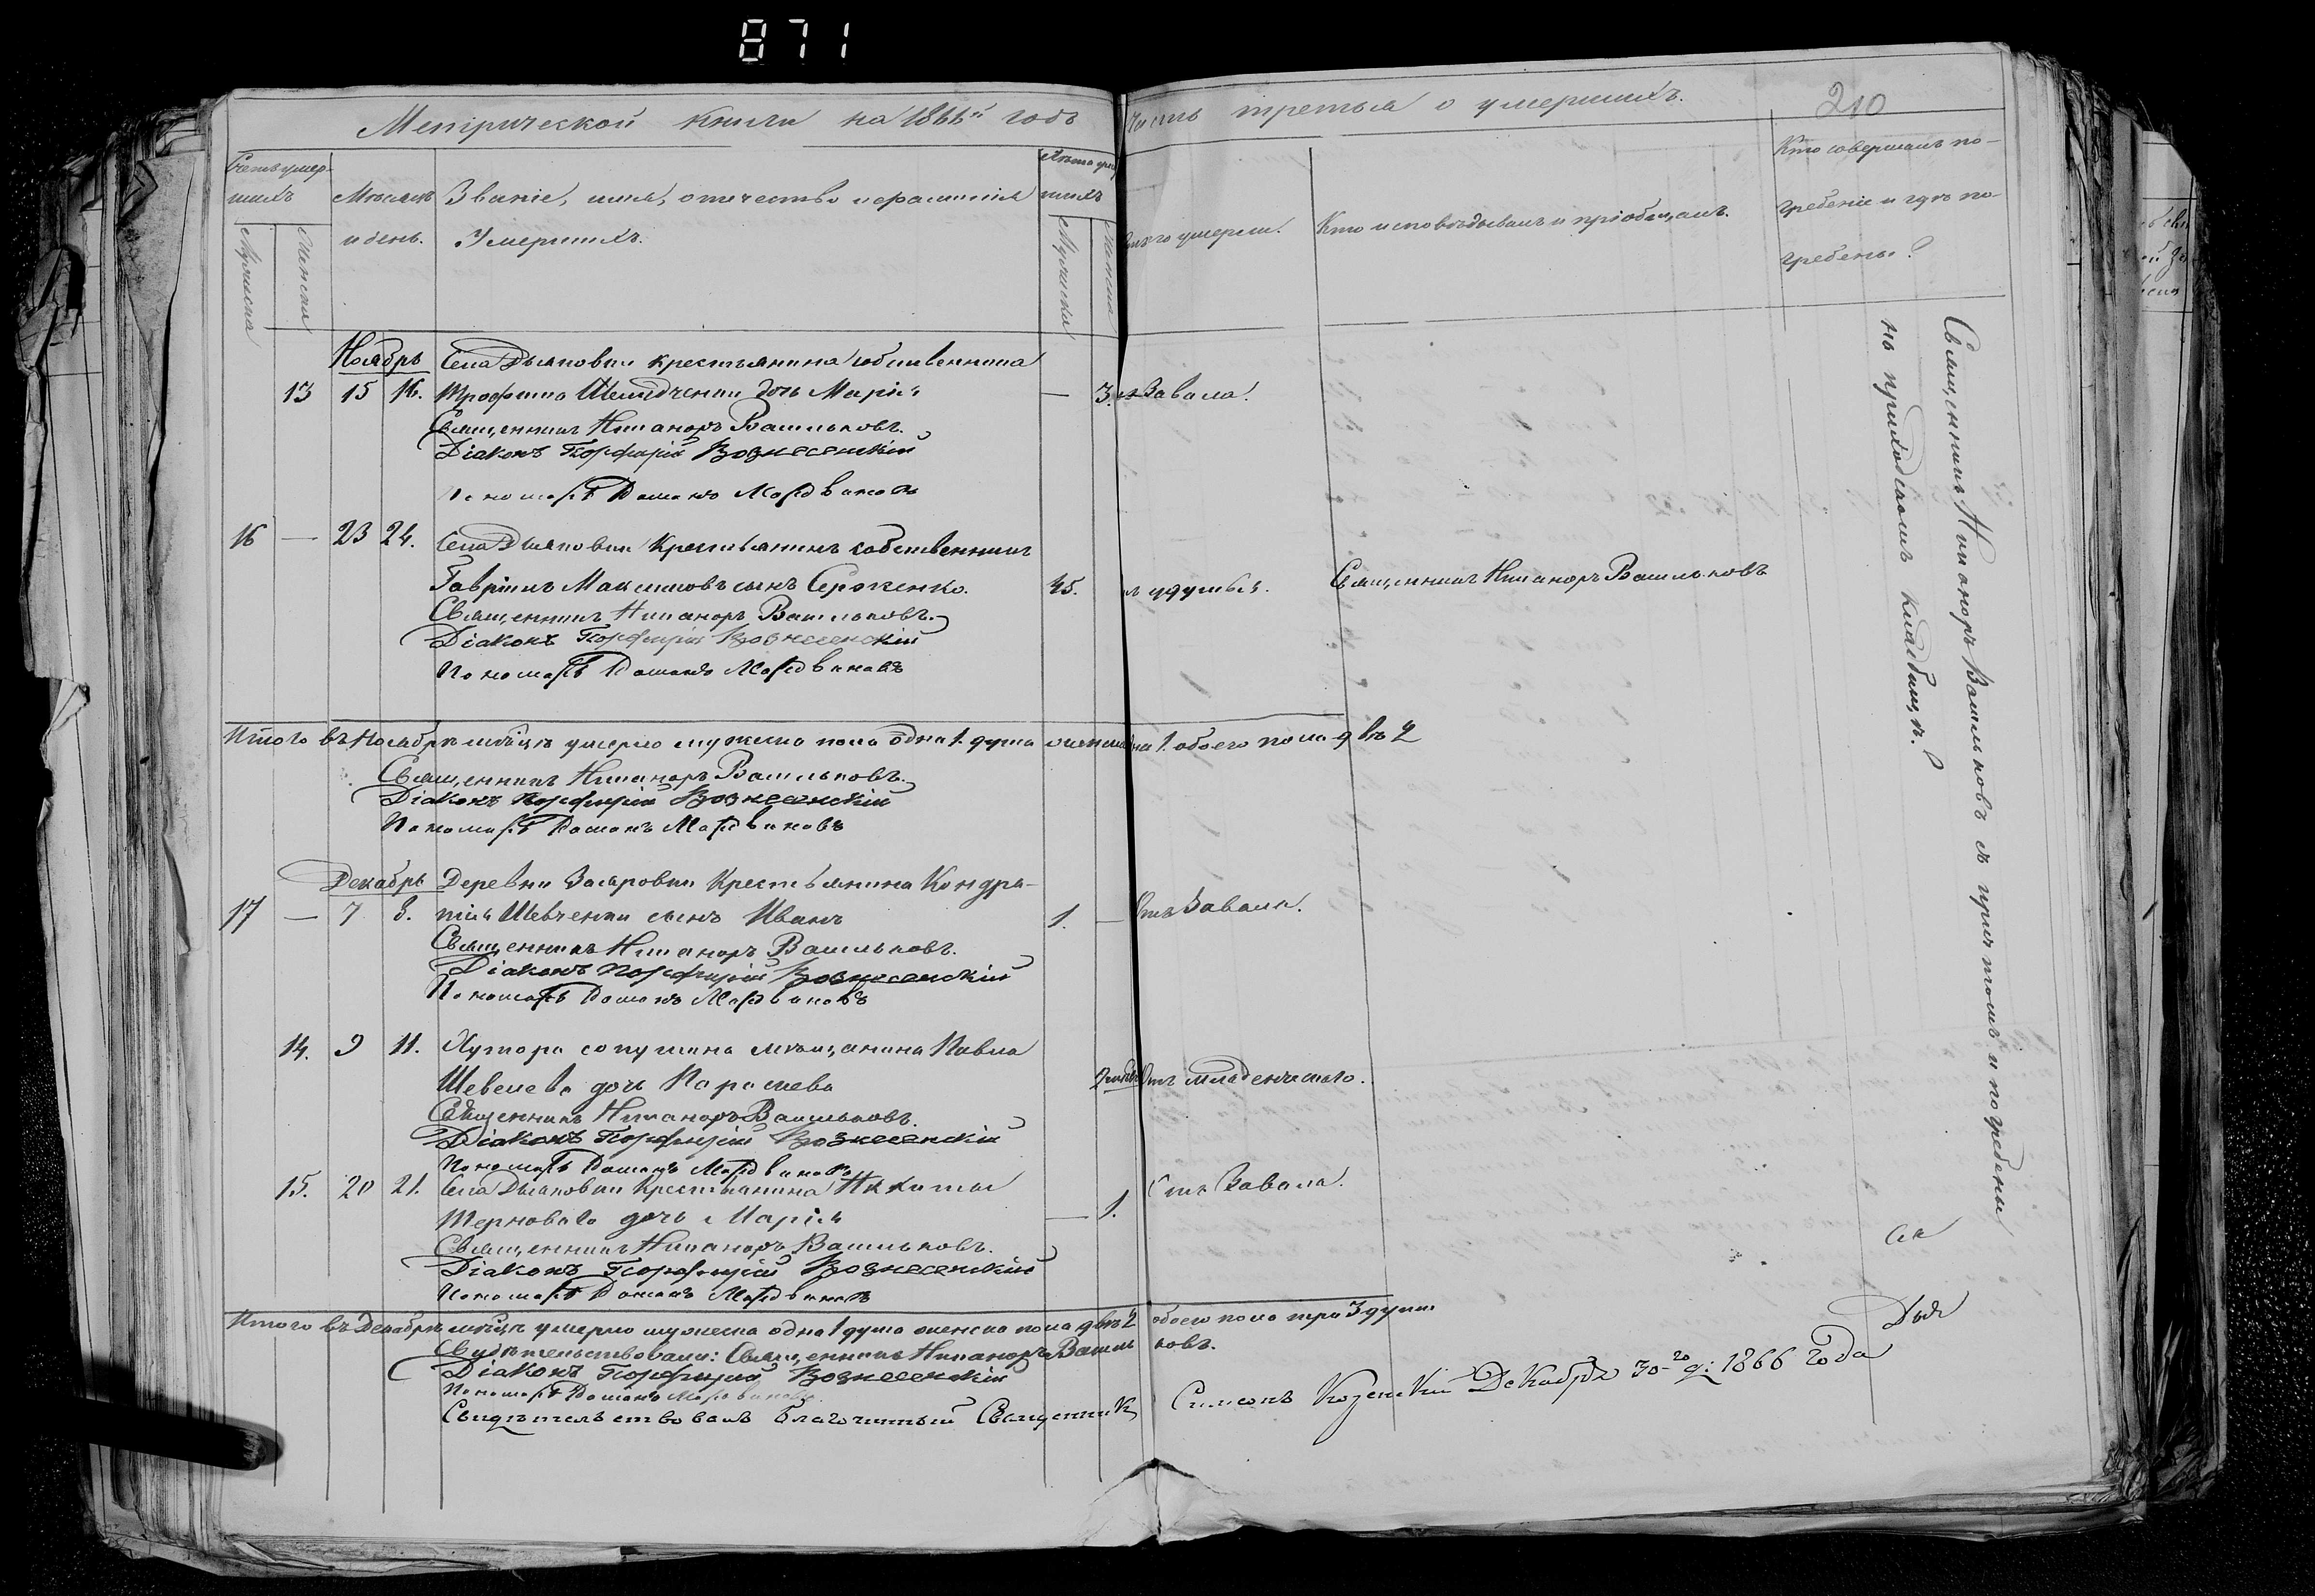 871
Метрической книги на 1866й годъ часть третья о умершихъ.
210
Счетъ умер-
шихъ
Мужеска
Женска
Мѣсяцъ
и день.
Званіе, имя, отчество и фамилія
Умершихъ.
Лѣта умер
шихъ
Мужеска
Женска
чего умерли.
Кто исповѣдывалъ и пріобщалъ.
Кто совершалъ по-
гребеніе и гдѣ по-
гребены?
Ноябрь
Села Дьяковки крестьянина собственника
13 15 16. Трофима дочь Марія — 3. Завала.
Священникъ Никаноръ Васильковъ.
Діаконъ Порфирій Вознесенскій
Пономарь Романъ Мордвиновъ
16 — 23 24. Села Дьяковки Крестьянинъ собственникъ
Гавріилъ Максимовъ сынъ Сероженко. 45. удушья. Священникъ Никаноръ Васильковъ
Священникъ Никаноръ Васильковъ.
Діаконъ Порфирій Вознесенскій
Пономарь Романъ Мордвиновъ
Итого въ Ноябрѣ мѣсяцѣ умерло мужеска пола одна 1. душа женска 1. обоего пола двѣ 2
Священникъ Никаноръ Васильковъ.
Діаконъ Порфирій Вознесенскій
Пономарь Романъ Мордвиновъ
Декабрь
Деревни Захаровки Крестьянина Кондра-
17 — 7 8. тія Шевченки сынъ Иванъ 1. — Отъ Завала.
Священникъ Никаноръ Васильковъ.
Діаконъ Порфирій Вознесенскій
Пономарь Романъ Мордвиновъ
14. 9 11. Хутора мѣщанина Павла
Шевелева дочь Параскева Отъ младенческаго.
Священникъ Никаноръ Васильковъ.
Діаконъ Порфирій Вознесенскій
Пономарь Романъ Мордвиновъ
15. 20 21. Села Дьяковки Крестьянина Никиты
Терноваго дочь Марія — 1. Отъ Завала.
Священникъ Никаноръ Васильковъ.
Діаконъ Порфирій Вознесенскій
Пономарь Романъ Мордвиновъ
Итого въ Декабрѣ мѣсяцѣ умерло мужеска одна 1 душа женска пола двѣ 2 обоего пола три 3 души
Свидѣтельствовали: Священникъ Никаноръ Васильковъ.
Діаконъ Порфирій Вознесенскій
Пономарь Романъ Мордвиновъ
Свидѣтельствовалъ Благочинный Священникъ Симеонъ Декабря 30-го д: 1866 года
Священникъ Никаноръ Васильковъ съ причтомъ и погребены
на приходскомъ кладбищѣ.